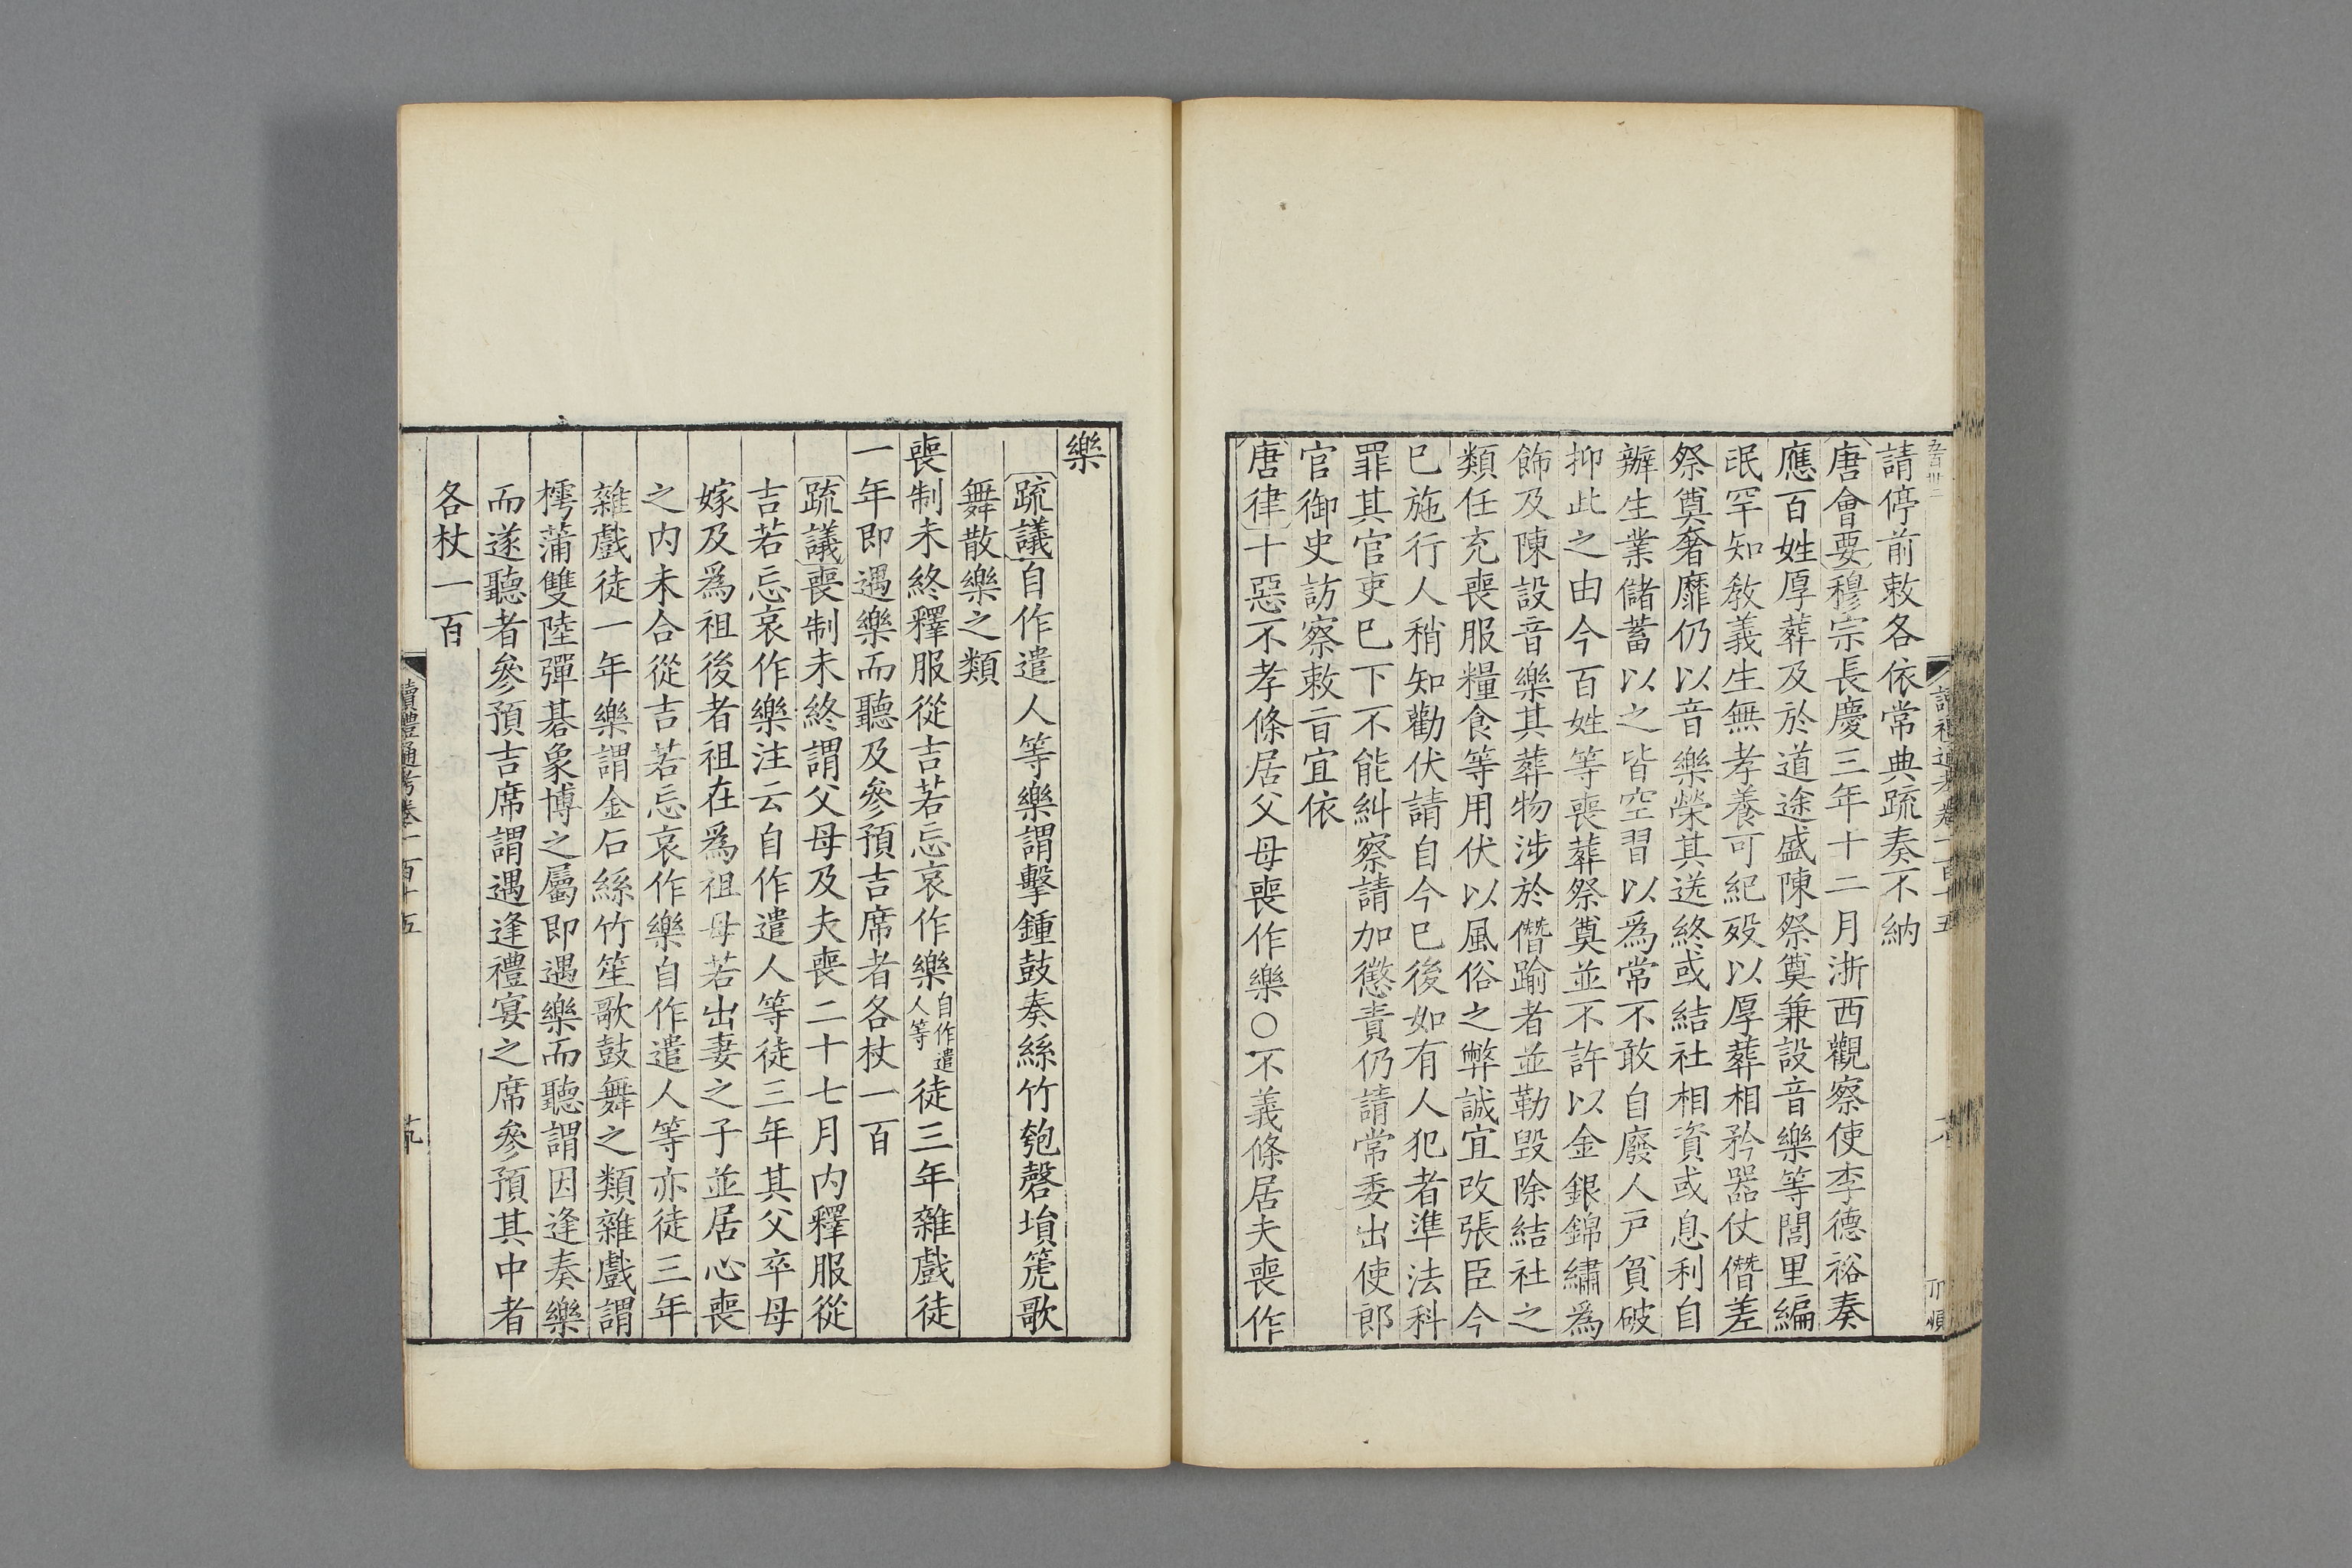 請停前敕各依常典疏奏不納
唐會要穆宗長慶三年十二月浙西觀察使李德裕奏
應百姓厚葬及於道途盛陳祭奠兼設音樂等閭里編
氓罕知教義生無孝養可紀歿以厚葬相矜器仗僭差
祭奠奢靡仍以音樂榮其送終或結社相資或息利自
辦生業儲蓄以之皆空習以爲常不敢自廢人戸貧破
抑此之由今百姓等喪葬祭奠並不許以金銀錦繡爲
飾及陳設音樂其葬物涉於僭踰者並勒毀除結社之
類任充喪服糧食等用伏以風俗之弊誠宜改張臣今
已施行人稍知勸伏請自今已後如有人犯者準法科
罪其官吏已下不能糾察請加懲責仍請常委出使郎
官御史訪察敕旨宜依
唐律十惡不孝條居父母喪作樂○不義條居夫喪作
樂
疏議自作遣人等樂謂擊鍾鼓奏絲竹匏磬塤篪歌
舞散樂之類
喪制未終釋服從吉若忘哀作樂自作遣人等徒三年雜戲徒
一年即遇樂而聽及參預吉席者各杖一百
疏議喪制未終謂父母及夫喪二十七月内釋服從
吉若忘哀作樂注云自作遣人等徒三年其父卒母
嫁及爲祖後者祖在爲祖母若出妻之子並居心喪
之内未合從吉若忘哀作樂自作遣人等亦徒三年
雜戲徒一年樂謂金石絲竹笙歌鼓舞之類雜戲謂
樗蒲雙陸彈碁象博之屬即遇樂而聽謂因逢奏樂
而遂聽者參預吉席謂遇逢禮宴之席參預其中者
各杖一百
讀禮通考卷一百十五